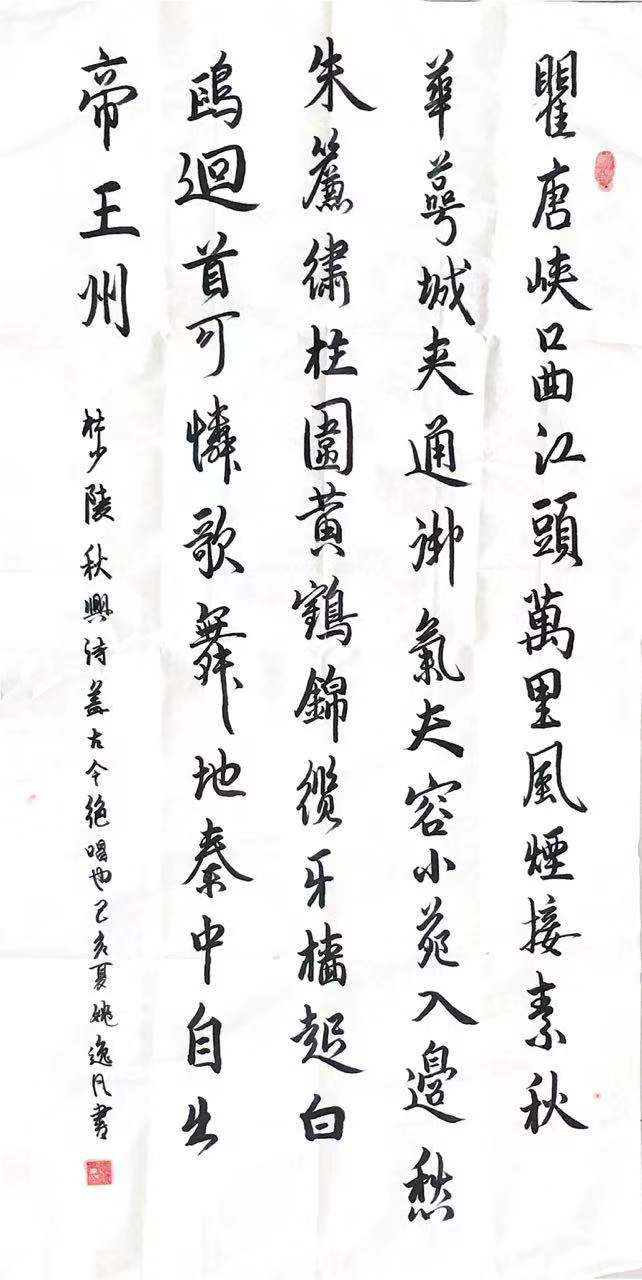 瞿唐峽口曲江頭萬里風煙接素秋
華萼城夾通御氣夫容小苑入邊愁
朱簾繡柱圍黃鶴錦纜牙檣起白
鷗迴首可憐歌舞地秦中自出
帝王州
杜少陵秋興詩蓋古今絕唱也己亥夏姚逸凡書